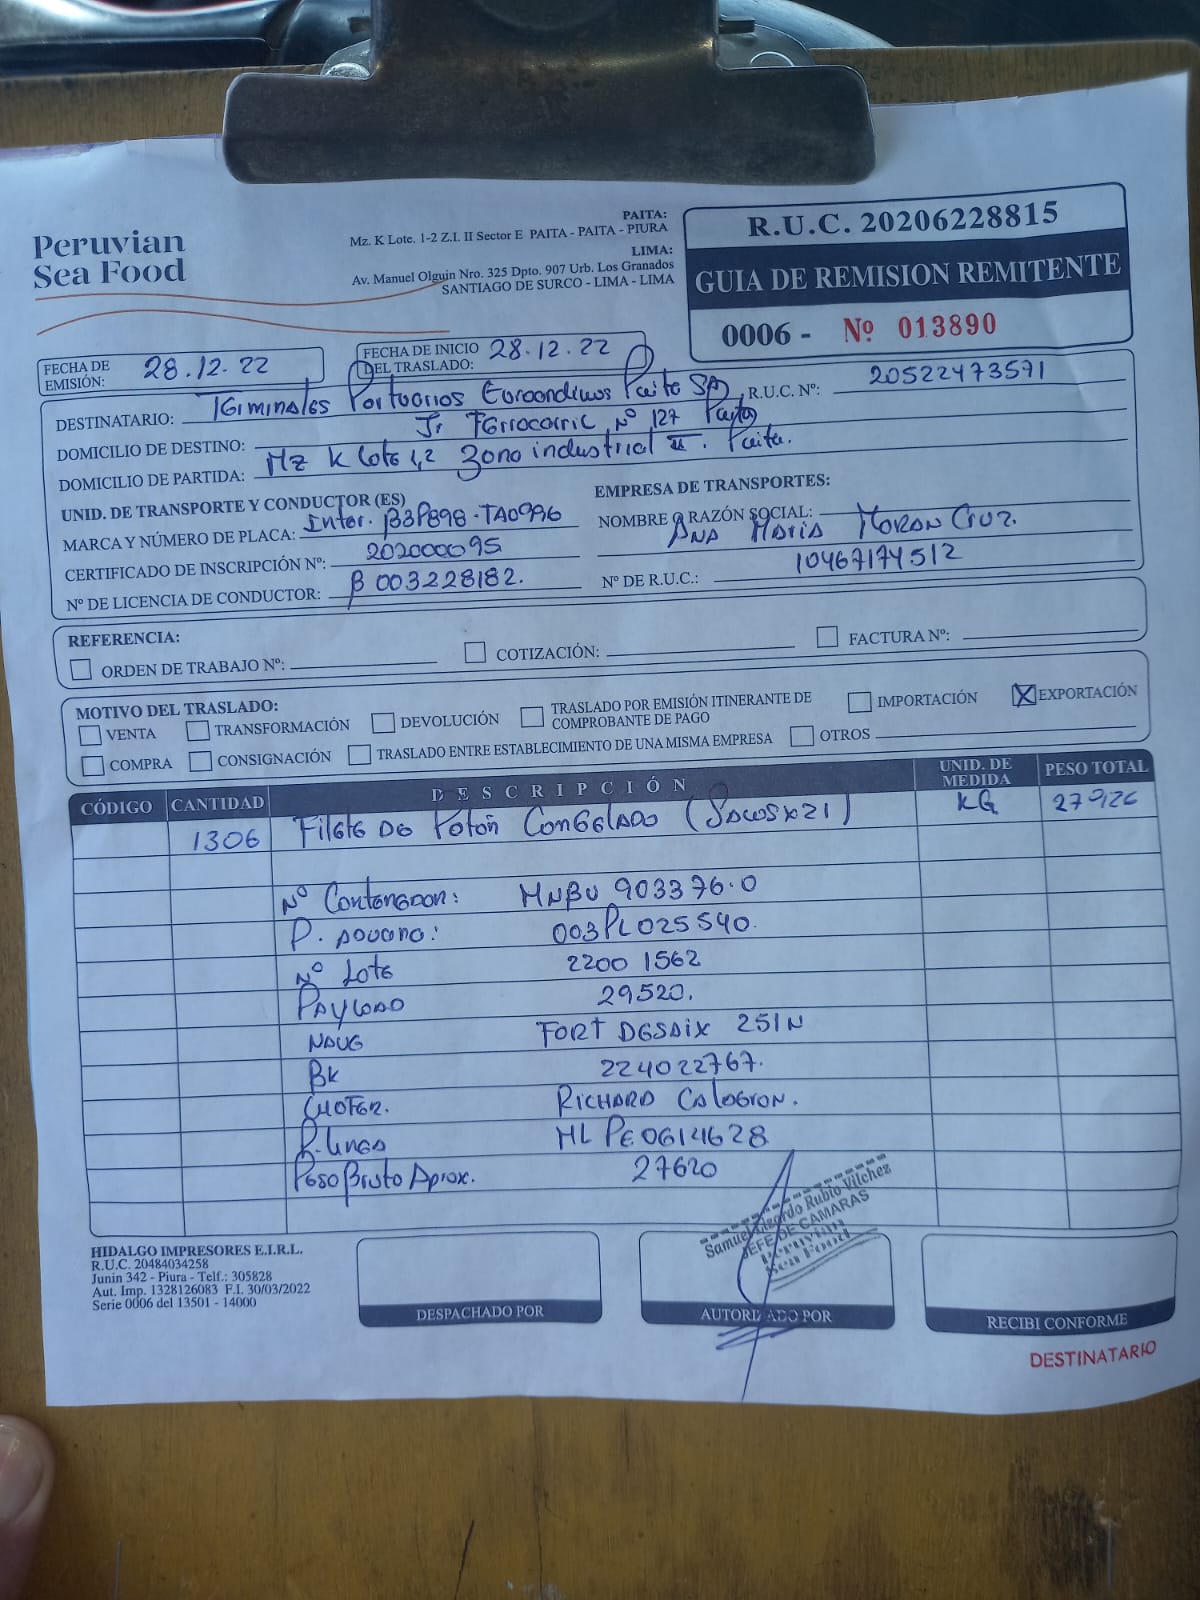 Peruvian
Sea Food
PAITA:
Mz. K Lote. 1-2 Z.I. II Sector E PAITA - PAITA - PIURA
LIMA:
Av. Manuel Olguin Nro. 325 Dpto. 907 Urb. Los Granados
SANTIAGO DE SURCO - LIMA - LIMA
R.U.C. 20206228815
GUIA DE REMISION REMITENTE
0006 - Nº 013890
FECHA DE EMISIÓN: 28.12.22
FECHA DE INICIO DEL TRASLADO: 28.12.22
DESTINATARIO: Terminales Portuarios Euroandinos Paita SA, R.U.C. Nº: 20522473571
DOMICILIO DE DESTINO: Jr Ferrocarril Nº 127 Paita
DOMICILIO DE PARTIDA: Mz K Lote 1,2 Zona industrial II. Paita.
UNID. DE TRANSPORTE Y CONDUCTOR (ES)
MARCA Y NÚMERO DE PLACA: Inter. B3P898-TA0996
CERTIFICADO DE INSCRIPCIÓN Nº: 202000095
Nº DE LICENCIA DE CONDUCTOR: B 003228182.
EMPRESA DE TRANSPORTES:
NOMBRE O RAZÓN SOCIAL: Ana Maria Moran Cruz.
Nº DE R.U.C.: 10467174512
REFERENCIA:
ORDEN DE TRABAJO Nº: COTIZACIÓN: FACTURA Nº:
MOTIVO DEL TRASLADO:
VENTA TRANSFORMACIÓN DEVOLUCIÓN TRASLADO POR EMISIÓN ITINERANTE DE COMPROBANTE DE PAGO IMPORTACIÓN X EXPORTACIÓN
COMPRA CONSIGNACIÓN TRASLADO ENTRE ESTABLECIMIENTO DE UNA MISMA EMPRESA OTROS
CÓDIGO CANTIDAD DESCRIPCIÓN UNID. DE MEDIDA PESO TOTAL
1306 Filete De Poton Congelado (Sacosx21) KG
Nº Contenedor: MNBU 903376-0
P. aduana: 003PL025540.
Nº Lote 2200 1562
Payload 29520.
Nave FORT DESAIX 251N
BK 224022767.
Chofer. Richard Calderon.
P. Linea ML PE0614628
Peso Bruto Aprox. 27620
Samuel Lizardo Rubio Vilchez
JEFE DE CAMARAS
Peruvian
Sea Food
HIDALGO IMPRESORES E.I.R.L.
R.U.C. 20484034258
Junin 342 - Piura - Telf.: 305828
Aut. Imp. 1328126083 F.I. 30/03/2022
Serie 0006 del 13501 - 14000
DESPACHADO POR
AUTORIZADO POR
RECIBI CONFORME
DESTINATARIO